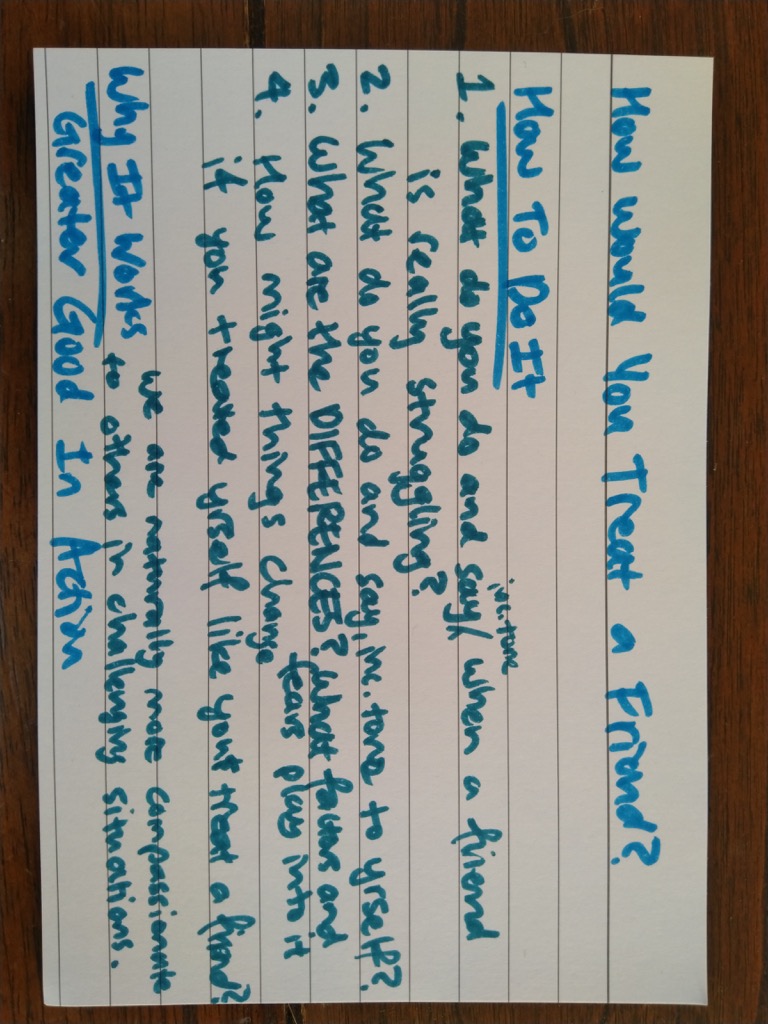 How would You Treat a Friend?
How To Do It
1. What do you do and say, inc. tone when a friend
is really struggling?
2. What do you do and say, inc. tone to yrself?
3. What are the DIFFERENCES? What factors and
fears play into it
4. How might things change
if you treated yrself like you't treat a friend?
Why It Works we are naturally more compassionate
to others in challenging situations.
Greater Good In Action